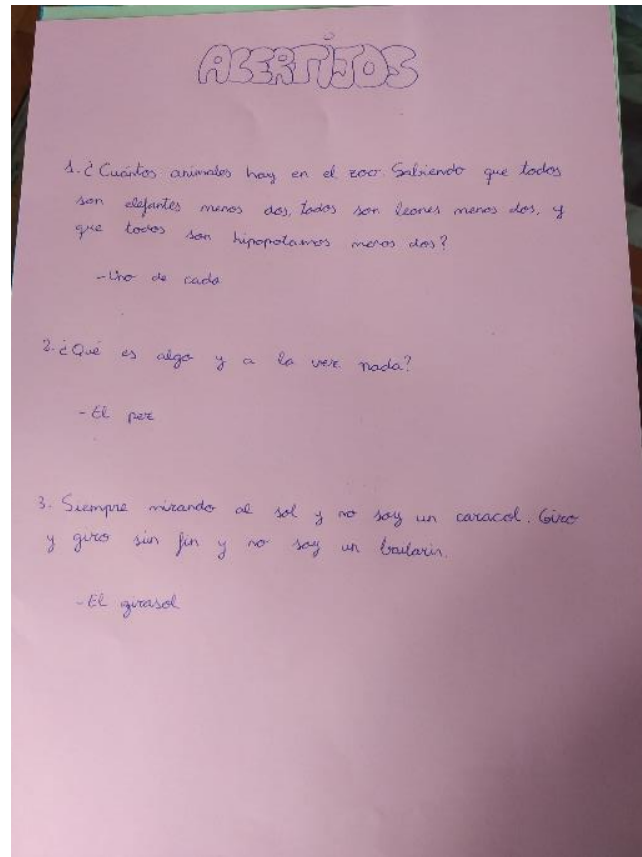 ACERTIJOS
1. ¿Cuántos animales hay en el zoo. Sabiendo que todos
son elefantes menos dos, todos son leones menos dos, y
que todos son hipopotamos menos dos?
-Uno de cada
2. ¿Qué es algo y a la vez nada?
-El pez
3. Siempre mirando al sol y no soy un caracol. Giro
y giro sin fin y no soy un bailarin.
-El girasol